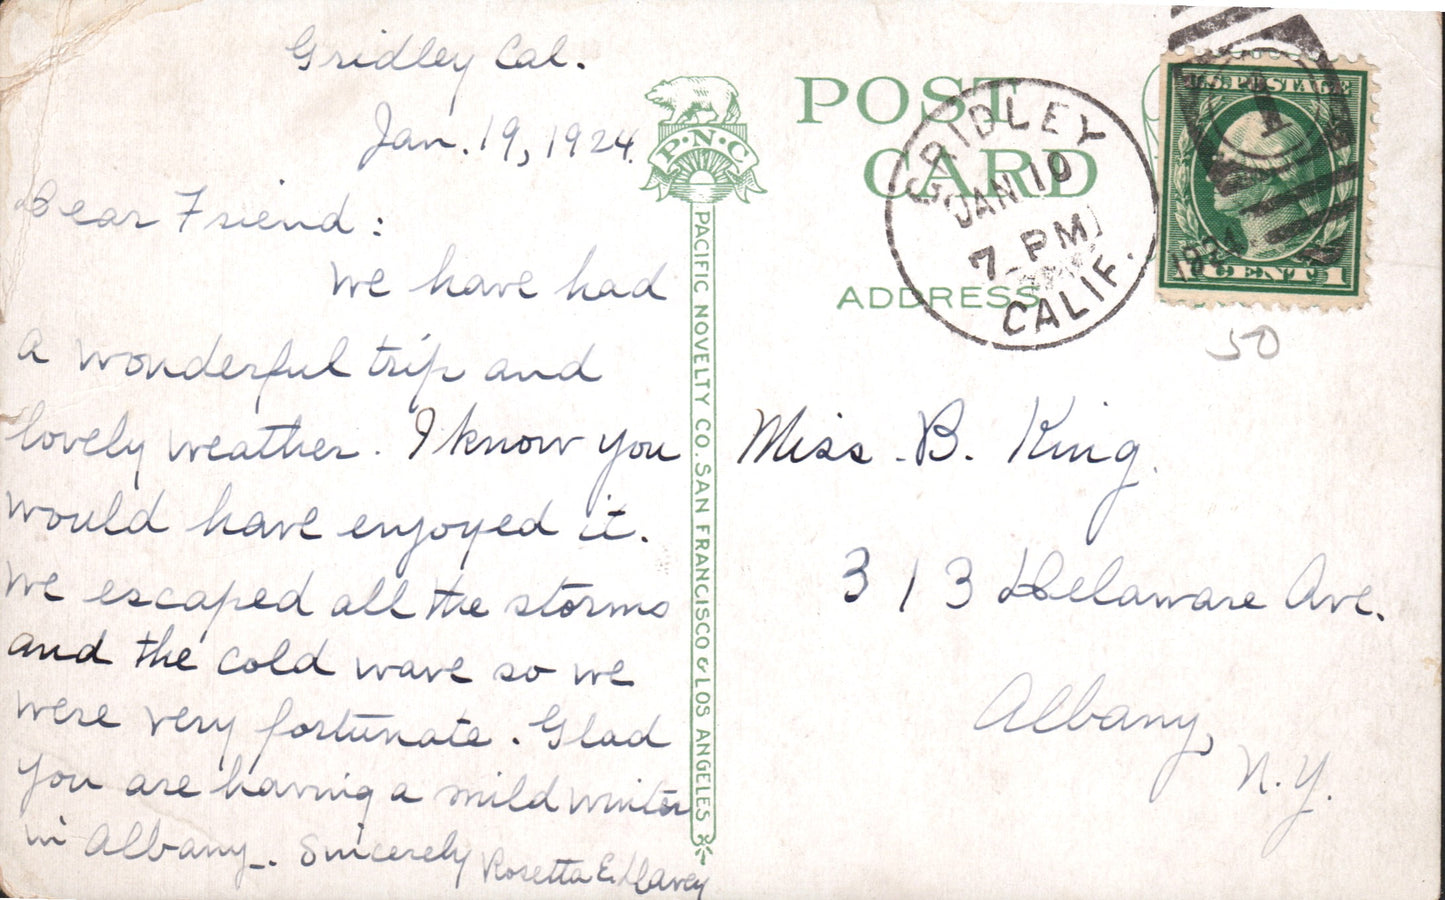 Gridley Cal.
Jan. 19, 1924.
Dear Friend:
We have had
a wonderful trip and
lovely weather. I know you
would have enjoyed it.
We escaped all the storms
and the cold wave so we
were very fortunate. Glad
you are having a mild winter
in Albany. Sincerely Rosetta E.
P.N.C
PACIFIC NOVELTY CO. SAN FRANCISCO & LOS ANGELES
POST
CARD
ADDRESS
GRIDLEY
JAN 10
7 PM
1924
CALIF.
1
U.S. POSTAGE
1 CENT 1
50
Miss B. King.
313 Delaware Ave.
Albany,
N.Y.